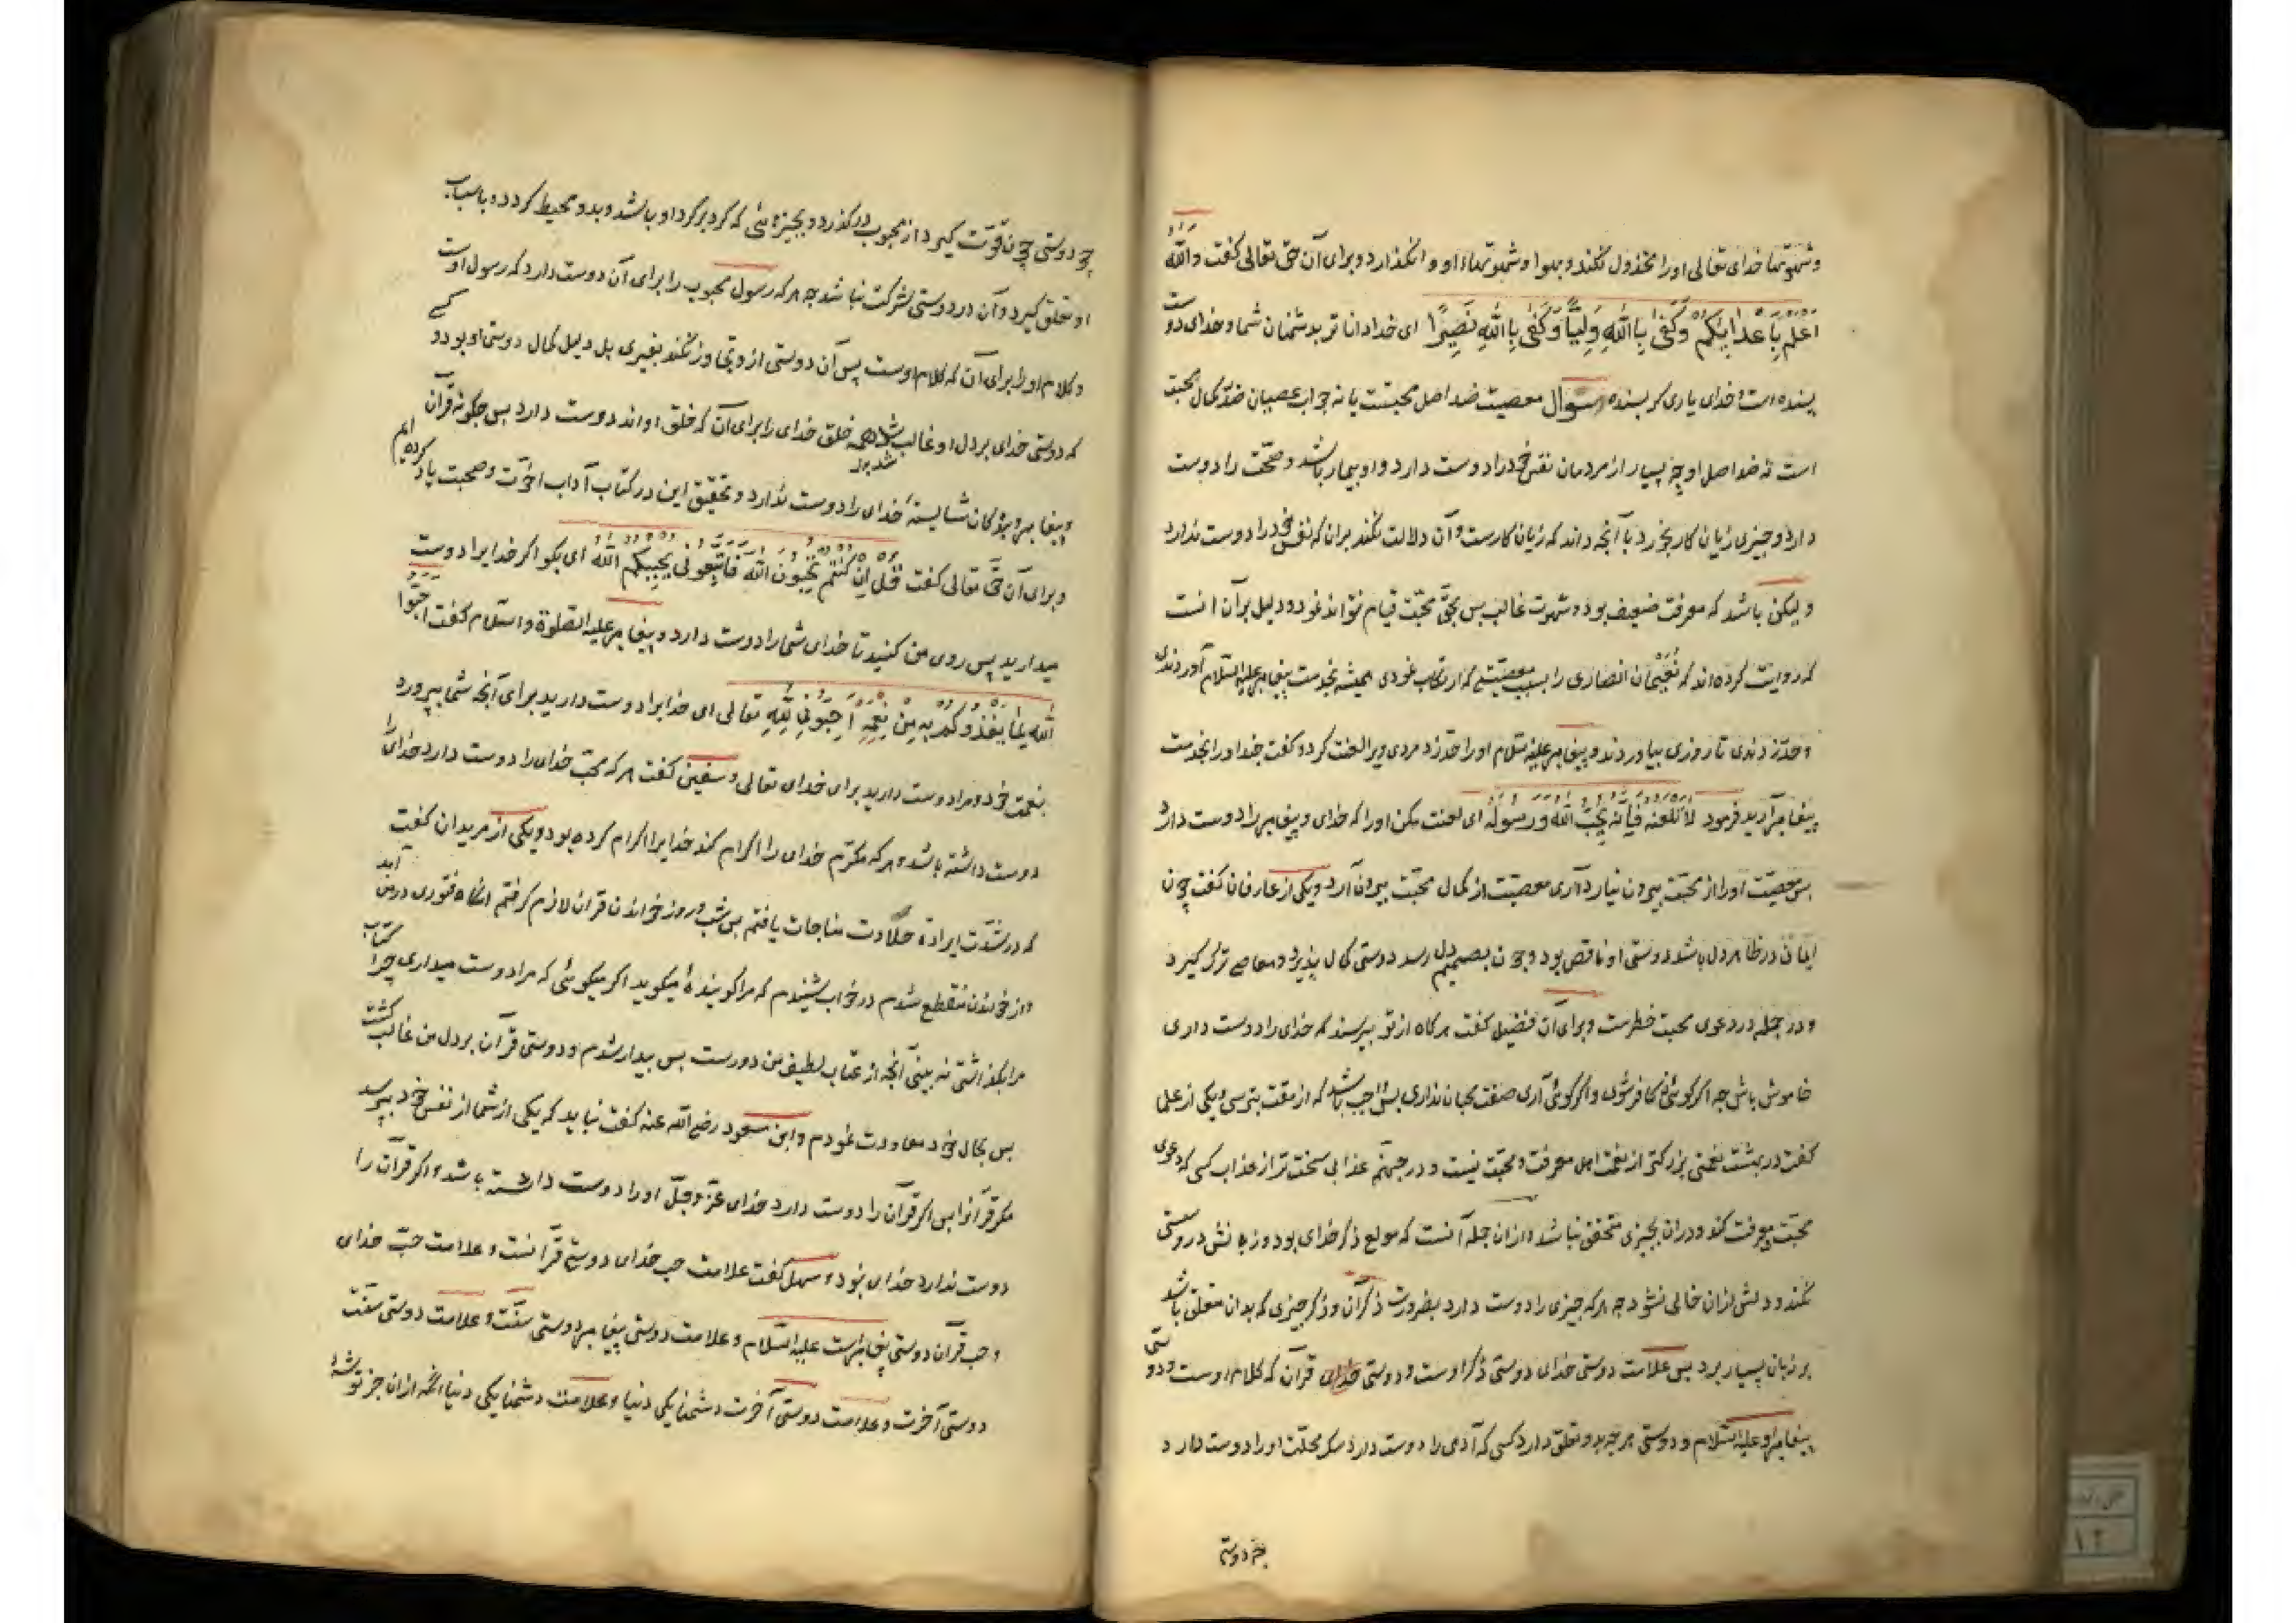 و شهوتها خدای تعالی او را مخذول نکند و بهوا و شهوتهاء او وانگذارد و برای آن حق تعالی کفت والله
اعلم باعدایکم وکفی بالله ولیا وکفی بالله نصیرا ای خدا داناتر بدشمنان شما و خدای دوست
بسنده است و خدای یاری کر بسنده سوال معصیت ضد اصل محبتست یا نه جواب عصیان ضد کمال محبت
است نه ضد اصل او چه بسیار از مردمان نفس خود را دوست دارد و او بیمار باشد و صحت را دوست
دارد و چیزی زیان کار بخورد با آنچه داند که زیان کارست و آن دلالت نکند بران که نفس خود را دوست ندارد
و لیکن باشد که معرفت ضعیف بود و شهوت غالب بس بحق محبت قیام نتواند نمود و دلیل بر آن انست
که روایت کرده اند که نعیمان انصاری را بسبب معصیتی که ارتکاب نمودی همیشه بخدمت پیغامبر علیه السلام آوردندی
و حد زدندی تا روزی بیاوردند و پیغامبر علیه سلام او را حد زد مردی ویرا لعنت کرد و کفت چند او را بخدمت
پیغامبر آرید فرمود لا تلعنه فانه یحب الله ورسوله ای لعنت مکن او را که خدای و پیغامبر را دوست دارد
بس معصیت او را از محبت بیرون نیارد آری معصیت از کمال محبت بیرون آرد و یکی از عارفان کفت چون
ایمان در ظاهر دل باشد دوستی او ناقص بود و چون بصمیم دل رسد دوستی کمال پذیرد و معاصی ترک کیرد
و در جمله در دعوی محبت خطرست و برای آن فضیل کفت هرکاه از تو بپرسند که خدای را دوست داری
خاموش باش چه اکر کوئی نی کافر شوی و اکر کوئی آری صفت محبان نداری بس واجب باشد که از مقت بترسی و یکی از علما
کفت در بهشت نعمتی بزرکتر از نعمت اهل معرفت و محبت نیست و در جهنم عذابی سخت تر از عذاب کسی که دعوی
محبت و معرفت کند و دران بچیزی متحقق نباشد و ازان جمله آنست که مولع ذکر خدای بود و زبانش در وی سستی
نکند و دلش ازان خالی نشود چه هرکه چیزی را دوست دارد بضرورت ذکر آن و ذکر چیزی که بدان متعلق باشد
بر زبان بسیار برد بس علامت دوستی خدای دوستی ذکر اوست و دوستی قرآن که کلام اوست و دوستی
پیغامبر او علیه السلام و دوستی هرچه بدو تعلق دارد کسی که آدمی را دوست دارد سک محلت او را دوست دارد
چه دوستی
چه دوستی چون قوت کیرد از محبوب درکذرد و بچیزهائی که کرد برکرد او باشد و بدو محیط کردد و باسباب
او تعلق کیرد و آن در دوستی شرکت نباشد چه هرکه رسول محبوب را برای آن دوست دارد که رسول اوست
و کلام او را برای آن که کلام اوست پس آن دوستی از وی تجاوز نکند بغیری بل دلیل کمال دوستی او بود و کسی
که دوستی خدای بر دل او غالب شد همه خلق خدای را برای آن که خلق او اند دوست دارد بس چکونه قرآن
و پیغامبر و بندکان شایسته خدای را دوست ندارد و تحقیق این در کتاب آداب اخوت و صحبت یاد کرده ایم
و برای آن حق تعالی کفت قل ان کنتم تحبون الله فاتبعونی یحببکم الله ای بکو اکر خدایرا دوست
میدارید پس روی من کنید تا خدای شما را دوست دارد و پیغامبر علیه الصلوة والسلام کفت احبوا
الله لما یغذوکم به من نعمه احبونی لله تعالی ای خدایرا دوست دارید برای آنچه شما بپرورد
بنعمت خود و مرا دوست دارید برای خدای تعالی و سفین کفت هرکه محب خدای را دوست دارد خدای را
دوست داشته باشد و هرکه مکرم خدای را اکرام کند خدایرا اکرام کرده بود و یکی از مریدان کفت
که در شدت ارادة حلاوت مناجات یافتم بس شب و روز خواندن قرآن لازم کرفتم انکاه فتوری در من آمد
و از خواندن منقطع شدم در خواب شنیدم که مرا کوینده میکوید اکر میکوئی که مرا دوست میداری چرا کتاب
مرا بکذاشتی نه بینی آنچه از عتاب لطیف من دروست بس بیدار شدم و دوستی قرآن بر دل من غالب کشت
بس بحال خود معاودت نمودم و ابن مسعود رضی الله عنه کفت نباید که یکی از شما از نفس خود بپرسد
مکر قرآنرا بس اکر قرآن را دوست دارد خدای عز و جل او را دوست داشته باشد و اکر قرآن را
دوست ندارد خدای نبود و سهل کفت علامت حب خدای دوستی قرآنست و علامت حب خدای
و حب قرآن دوستی پیغامبراست علیه السلام و علامت دوستی پیغامبر دوستی سنت و علامت دوستی سنت
دوستی آخرت و علامت دوستی آخرت دشمنایکی دنیا و علامت دشمنایکی دنیا انکه ازان جز توشه